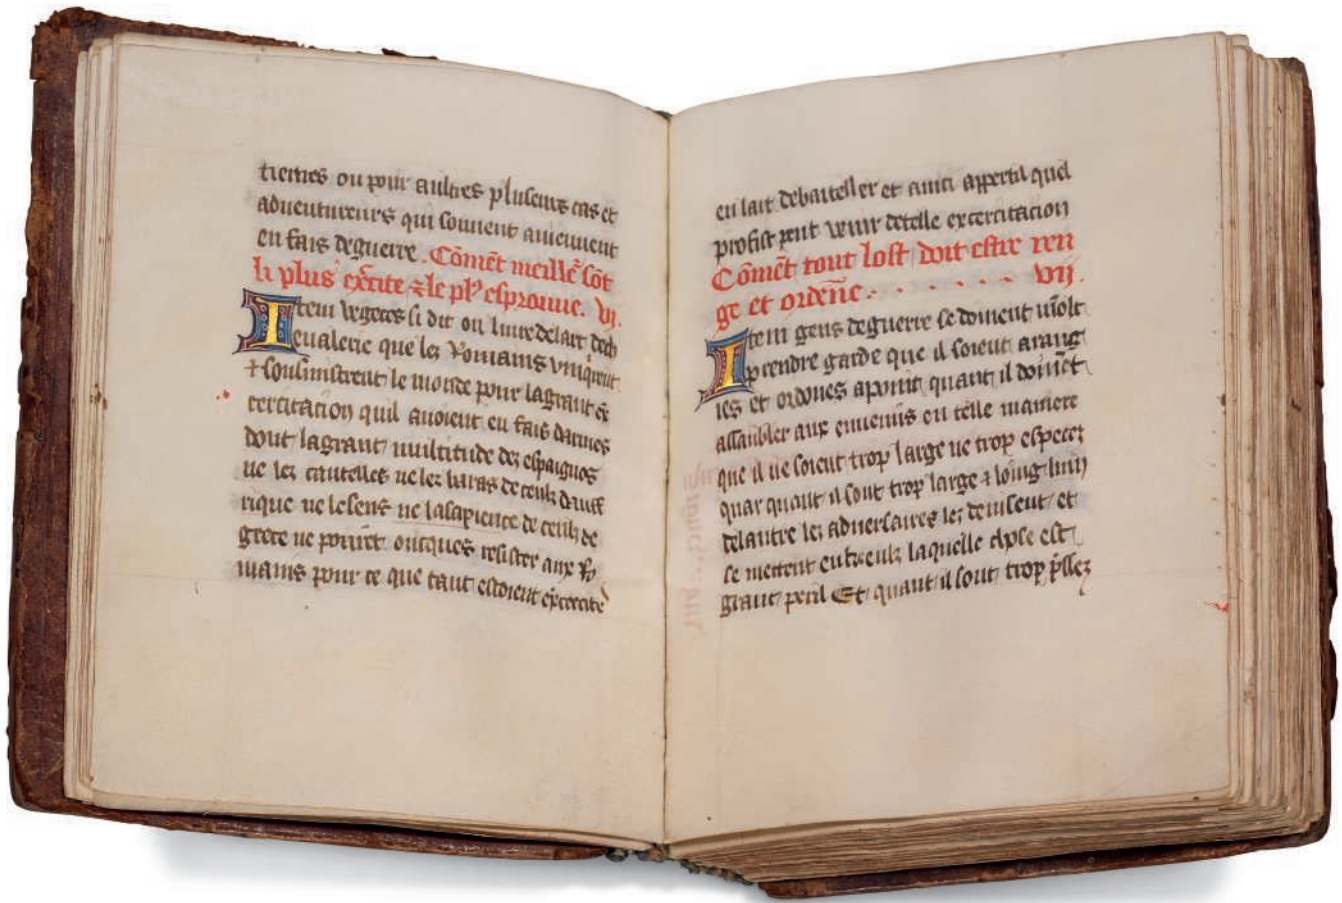 tiemes ou pour aultres pluseurs cas et
aduentureurs qui souuent auiennent
en fais deguerre. Cōmēt meillē sōt
li plus exc̄ite ⁊ le plꝰ esprouue. vj.
Item vegeces si dit ou liure delart dech
eualerie que lez Romains vniq̄rent
⁊ sousmistrent le monde pour lagrant ex̄
cercitacion quil auoient en fais darmes
dont lagrant multitude dez espaignos
ne lez cautelles ne lez baras de ceulz dauff
rique ne lesens ne lasapience de ceulz de
grece ne porrēt oncques resister aux Ro
mains pour ce que tant estoient excercite
en lart debateiller et ainci appert il quel
profist peut venir detelle excercitacion
Cōmēt tout lost doit estre ren
ge et ordene . . . . . . . vij.
Item gens deguerre se doiuent mōlt
prendre garde que il soient arang
ies et ordones apoint quant il doiuēt
assaubler aux ennemis en telle maniere
que il ne soient trop large ne trop especez
quar quant il sont trop large ⁊ loing lun
delautre lez aduersaires lez deuisent et
se mettent entreeulz laquelle chose est
grant peril Et quant il sont trop p̄ssez